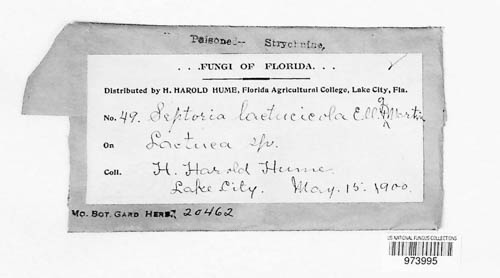 Poisoned-- Strychnine,
. . .FUNGI OF FLORIDA. . .
Distributed by H. HAROLD HUME, Florida Agricultural College, Lake City, Fla.
No. 49. Septoria lactucicola Ell. & Martin
On Lactuca sp.
Coll. H. Harold Hume.
Lake City. May. 15. 1900.
MO. BOT. GARD HERB. 20462
US NATIONAL FUNGUS COLLECTIONS
973995